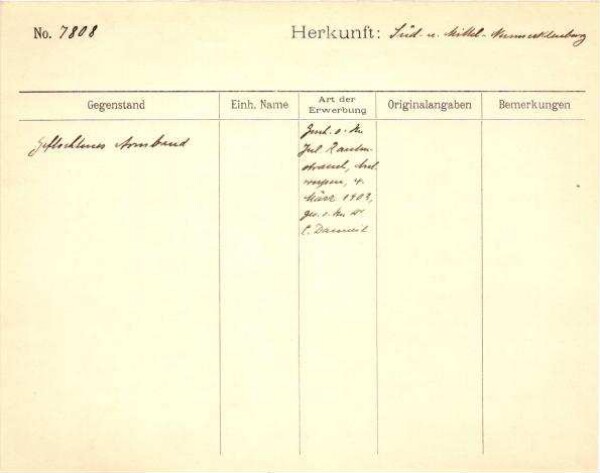 No. 7808 Herkunft: Süd- u. Mittel-Neumecklenburg
Gegenstand Einh. Name Art der Erwerbung Originalangaben Bemerkungen
Geflochtenes Armband
Gesch. v. Hn.
Jul.
Ant
werpen, 4.
März 1903,
ges. v. Hn Dr